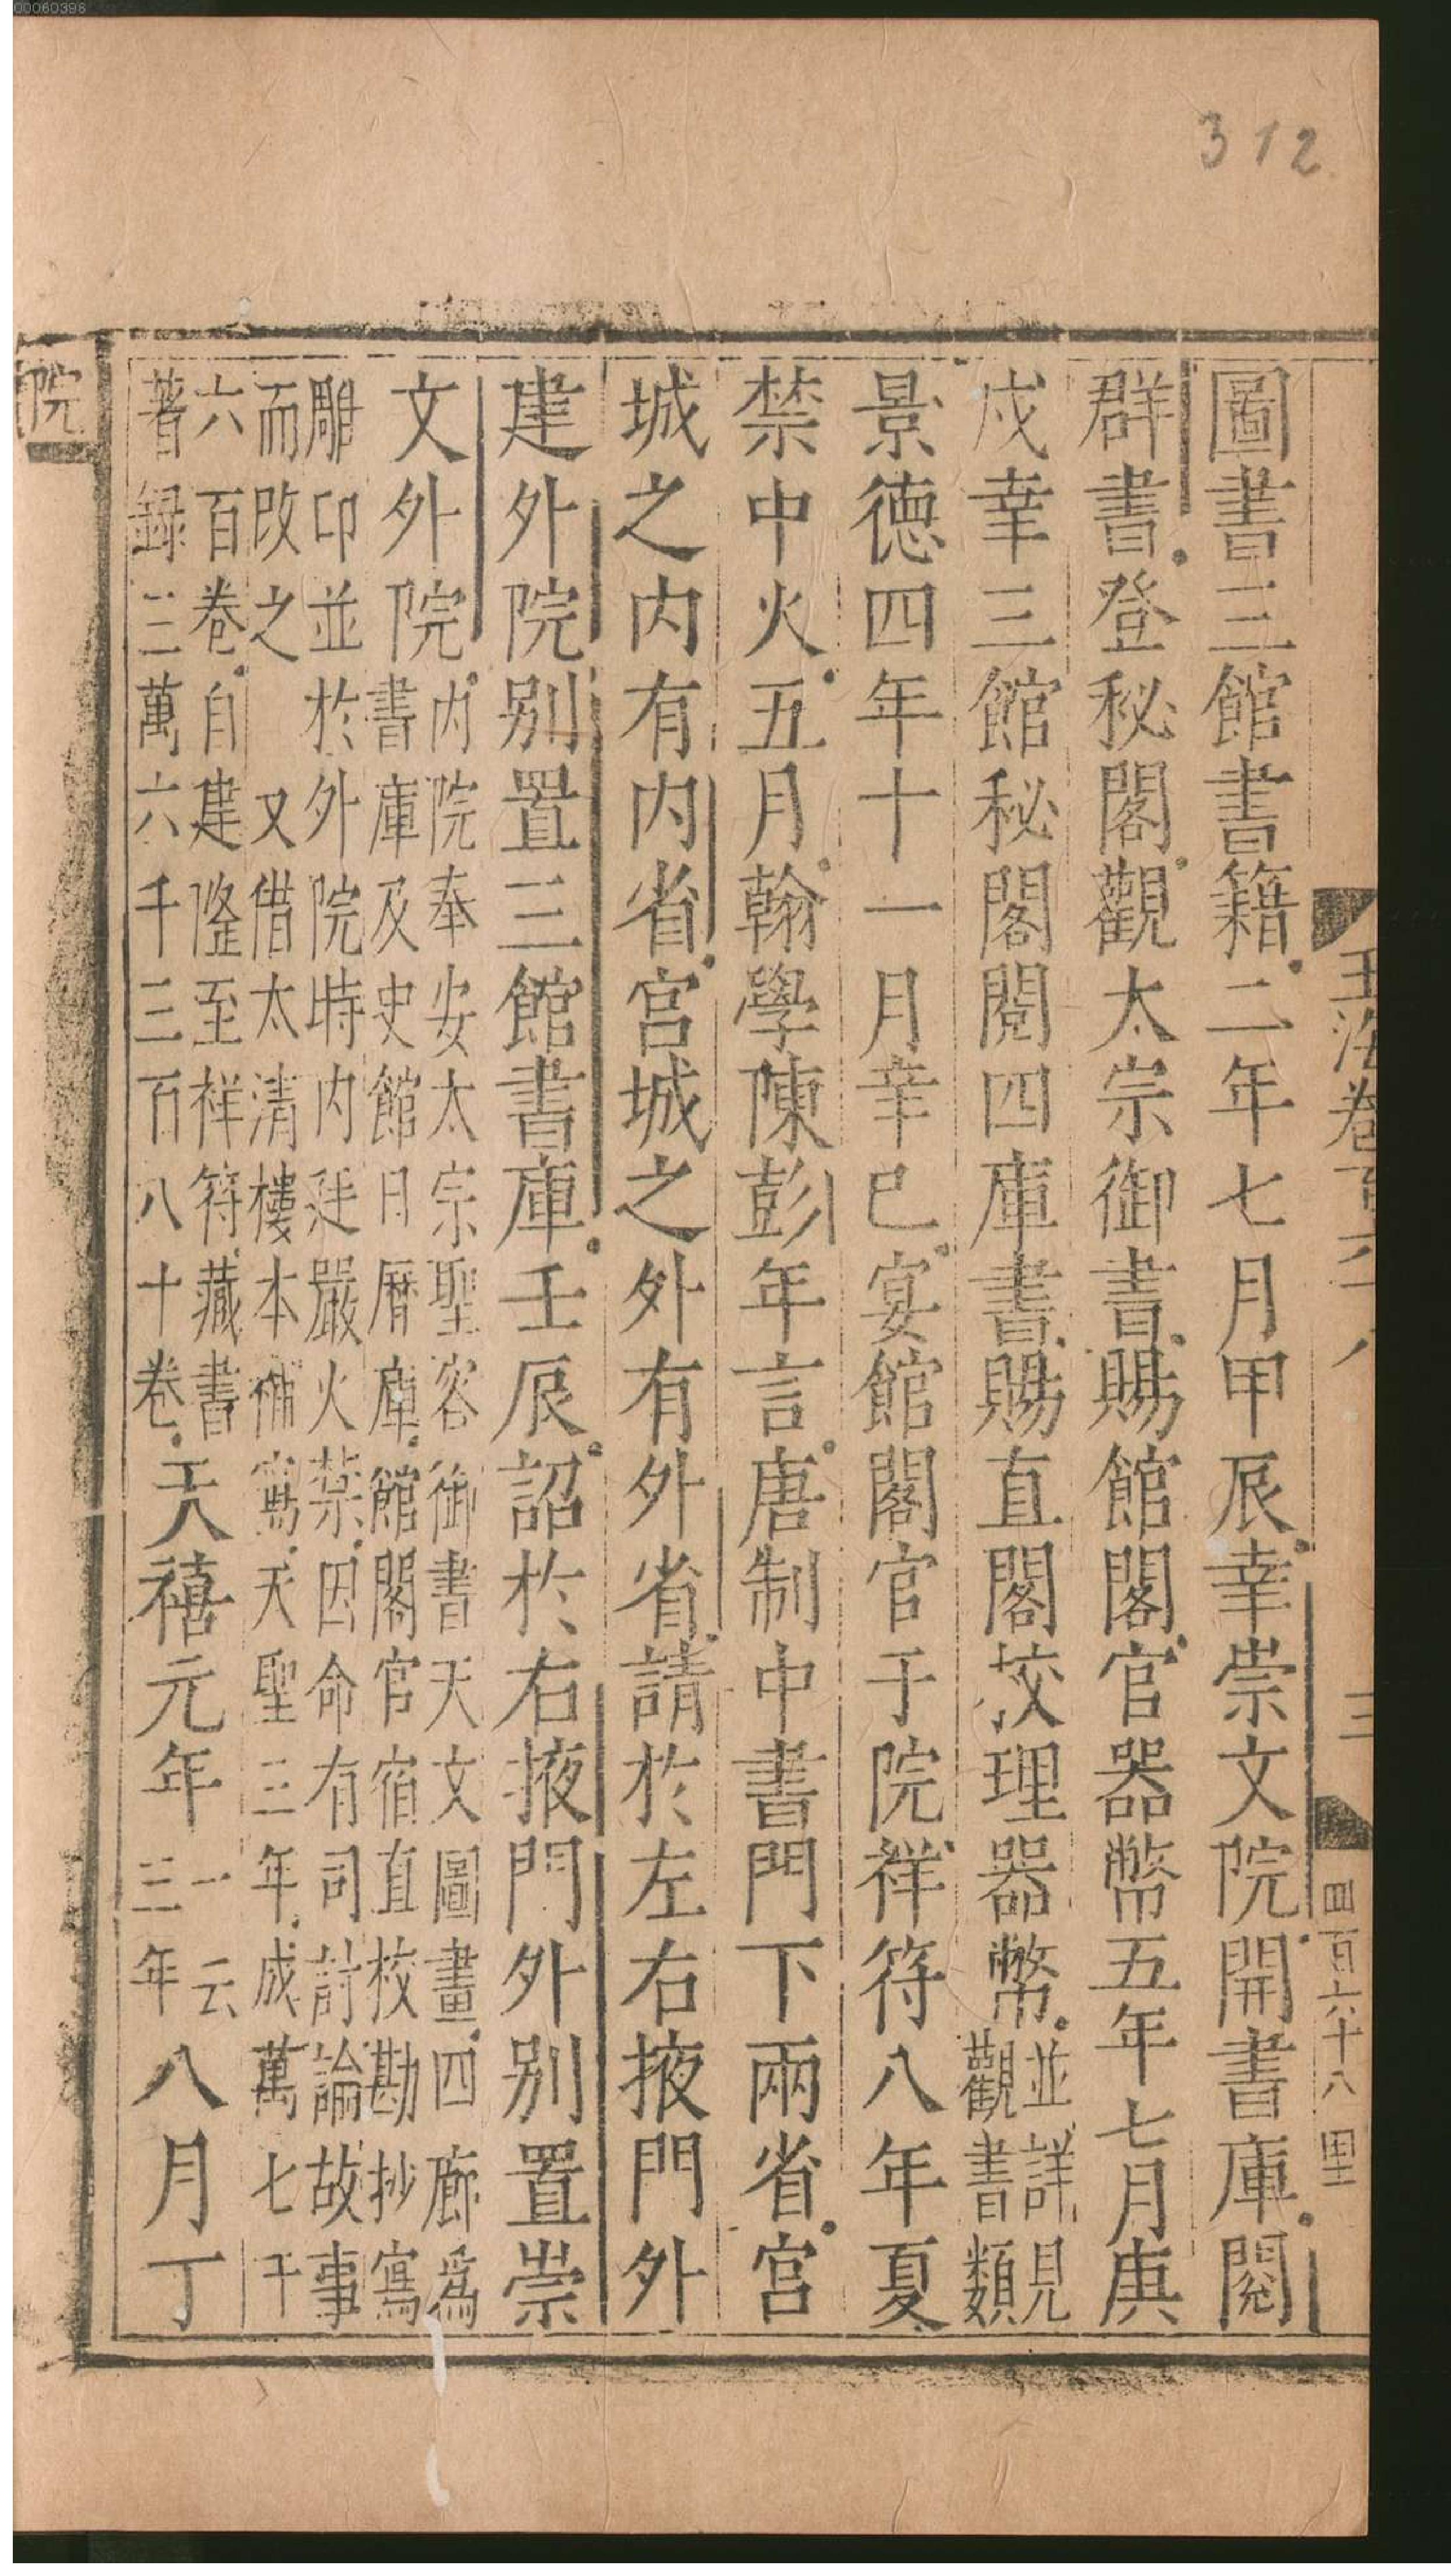 00060398
312
玉海卷百六十八
三
四百六十八
圖書三館書籍二年七月甲辰幸崇文院開書庫閱
群書登秘閣觀太宗御書賜館閣官器幣五年七月庚
戍幸三館秘閣閱四庫書賜直閣校理器幣並詳見
觀書類
景德四年十一月辛巳宴館閣官于院祥符八年夏
禁中火五月翰學陳彭年言唐制中書門下兩省宮
城之內有內省宮城之外有外省請於左右掖門外
建外院別置三館書庫壬辰詔於右掖門外別置崇
文外院內院奉安太宗聖容御書天文圖畫四廊爲
書庫及史館日曆庫館閣官宿直校勘抄寫
雕印並於外院時內廷嚴火禁因命有司討論故事
而改之 又借太清樓本補寫天聖三年成萬七千
六百卷自建隆至祥符藏書
著録三萬六千三百八十卷天禧元年一云
三年八月丁
院